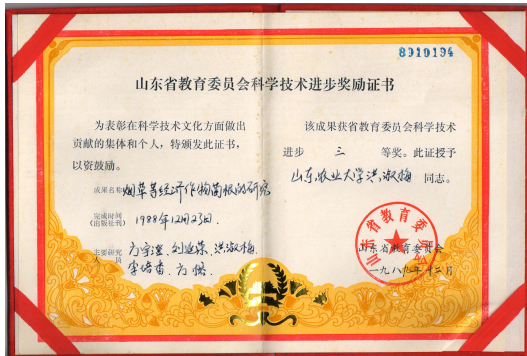 8910194
山东省教育委员会科学技术进步奖励证书
为表彰在科学技术文化方面做出
贡献的集体和个人，特颁发此证书，
以资鼓励。
成果名称 烟草等经济作物菌根的研究
完成时间
(出版社刊) 1988年12月23日.
主要研究
人 员
方宇澄. 刘延荣. 洪淑梅.
李培香. 方悠.
该成果获省教育委员会科学技术
进步 三 等奖。此证授予
山东农业大学洪淑梅 同志。
山东省教育委员会
山东省教育委员会
一九八九年十二月